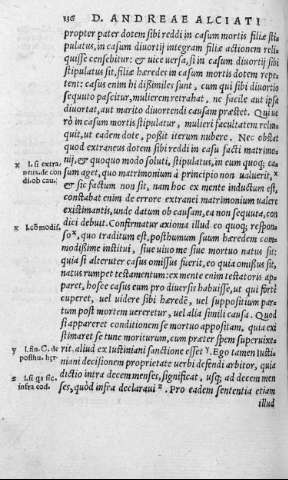 136 D. ANDREAE ALCIATI
propter pater dotem sibi reddi in casum mortis filiæ sti⸗
pulatus, in casum diuortij integram filiæ actionem reli⸗
quisse censebitur: & uice uersa, si in casum diuortij sibi
stipulatus sit, filiæ hæredes in casum mortis dotem repe⸗
tent: casus enim hi dißimiles sunt, cum qui sibi diuortio
sequuto pascitur, mulierem retrahat, ne facile aut ipsa
diuortat, aut marito diuortendi causam præstet. Qui ue
rò in casum mortis stipulatur, mulieri facultatem relin⸗
quit, ut eadem dote, poßit iterum nubere. Nec obstat
quod extraneus dotem sibi reddi in casu facti matrimo⸗
nij, & quoquo modo soluti, stipulatus, in eum quoq; ca⸗
x l. si extra
sum aget, quo matrimonium à principio non ualuerit, x
neus. de con
& sic factum non sit, nam hoc ex mente inductum est,
di. ob cau.
constabat enim de errore extranei matrimonium ualere
existimantis, unde datum ob causam, ea non sequuta, con
dici debuit. Confirmatur axioma illud eo quoq; respon⸗
x l. commodis.
so x, quo traditum est, posthumum suum hæredem com⸗
modißime institui, siue uiuo me siue mortuo natus sit:
quia si alteruter casus omissus fuerit, eo quia omissus sit,
natus rumpet testamentum: ex mente enim testatoris ap⸗
paret, hosce casus eum pro diuersis habuisse, ut qui forte
cuperet, uel uidere sibi hæredẽ, uel suppositum par⸗
tum post mortem uereretur, uel alia simili causa. Quod
si appareret conditionem se mortuo appositam, quia exi
stimaret se tunc moriturum, cum præter spem superuixe⸗
y l. fin. C. de
rit. aliud ex Iustiniani sanctione esset y. Ego tamen Iusti⸗
posthu. hær.
niani decisionem proprietate uerbi defendi arbitror, quia
dictio infra decem menses, significat, usq; ad decem men
z l. si qs sic.
ses, quòd infra declaraui z. Pro eadem sententia etiam
infra eod.
illud